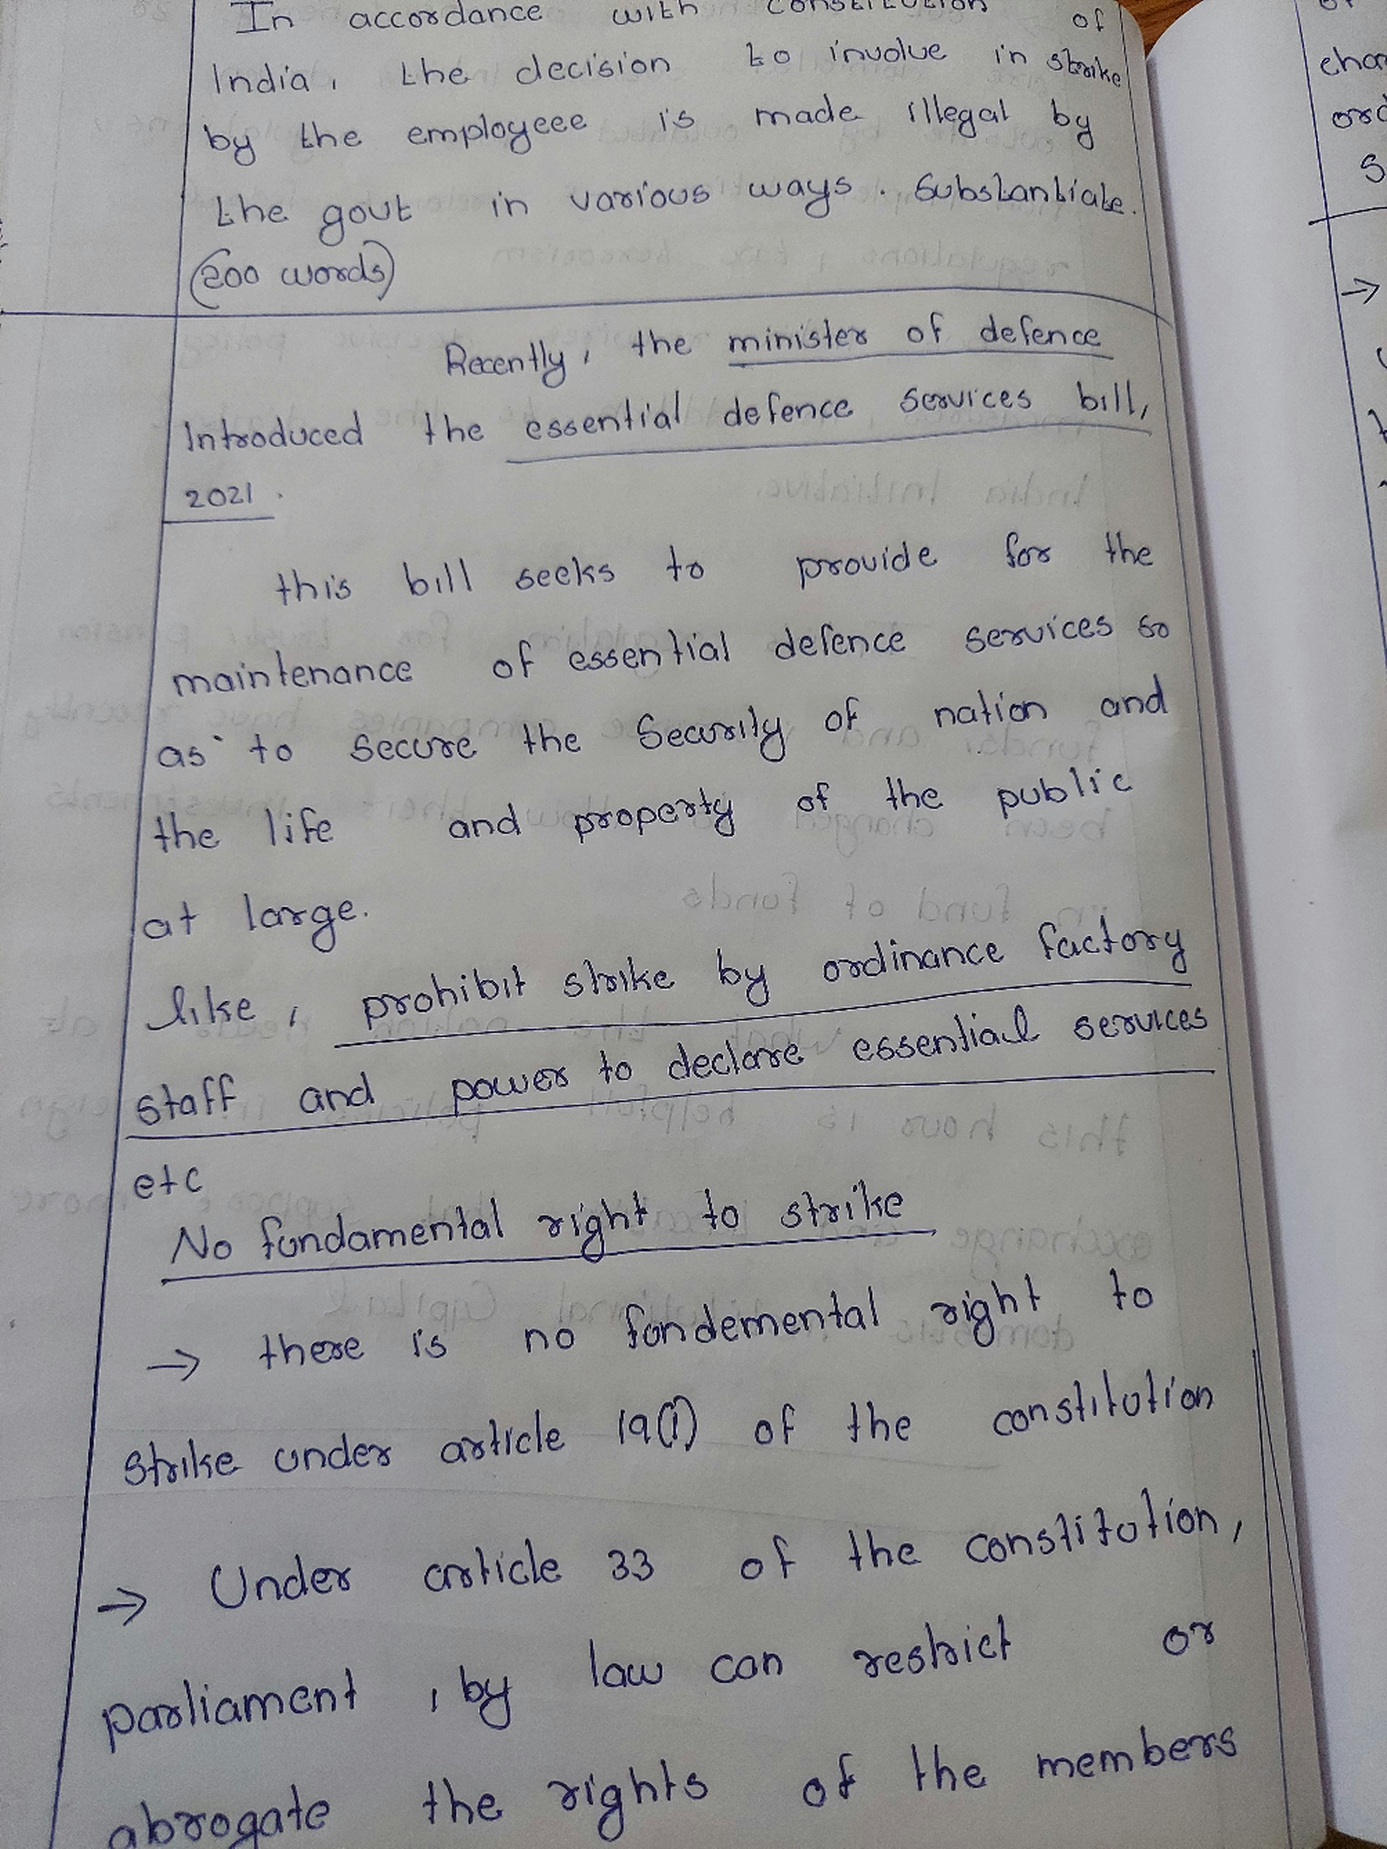 In accordance with constitution of
India, the decision to involve in strike
by the employeee is made illegal by
the govt in various ways. Substantiate.
(200 words)
Recently, the minister of defence
Introduced the essential defence services bill,
2021.
this bill seeks to provide for the
maintenance of essential defence services so
as to secure the Security of nation and
the life and property of the public
at large.
like, prohibit strike by ordinance factory
staff and power to declare essential services
etc
No fundamental right to strike
→ there is no fondemental right to
strike under article 19(1) of the constitution
→ Under article 33 of the constitution,
parliament, by law can restrict or
abrogate the rights of the members